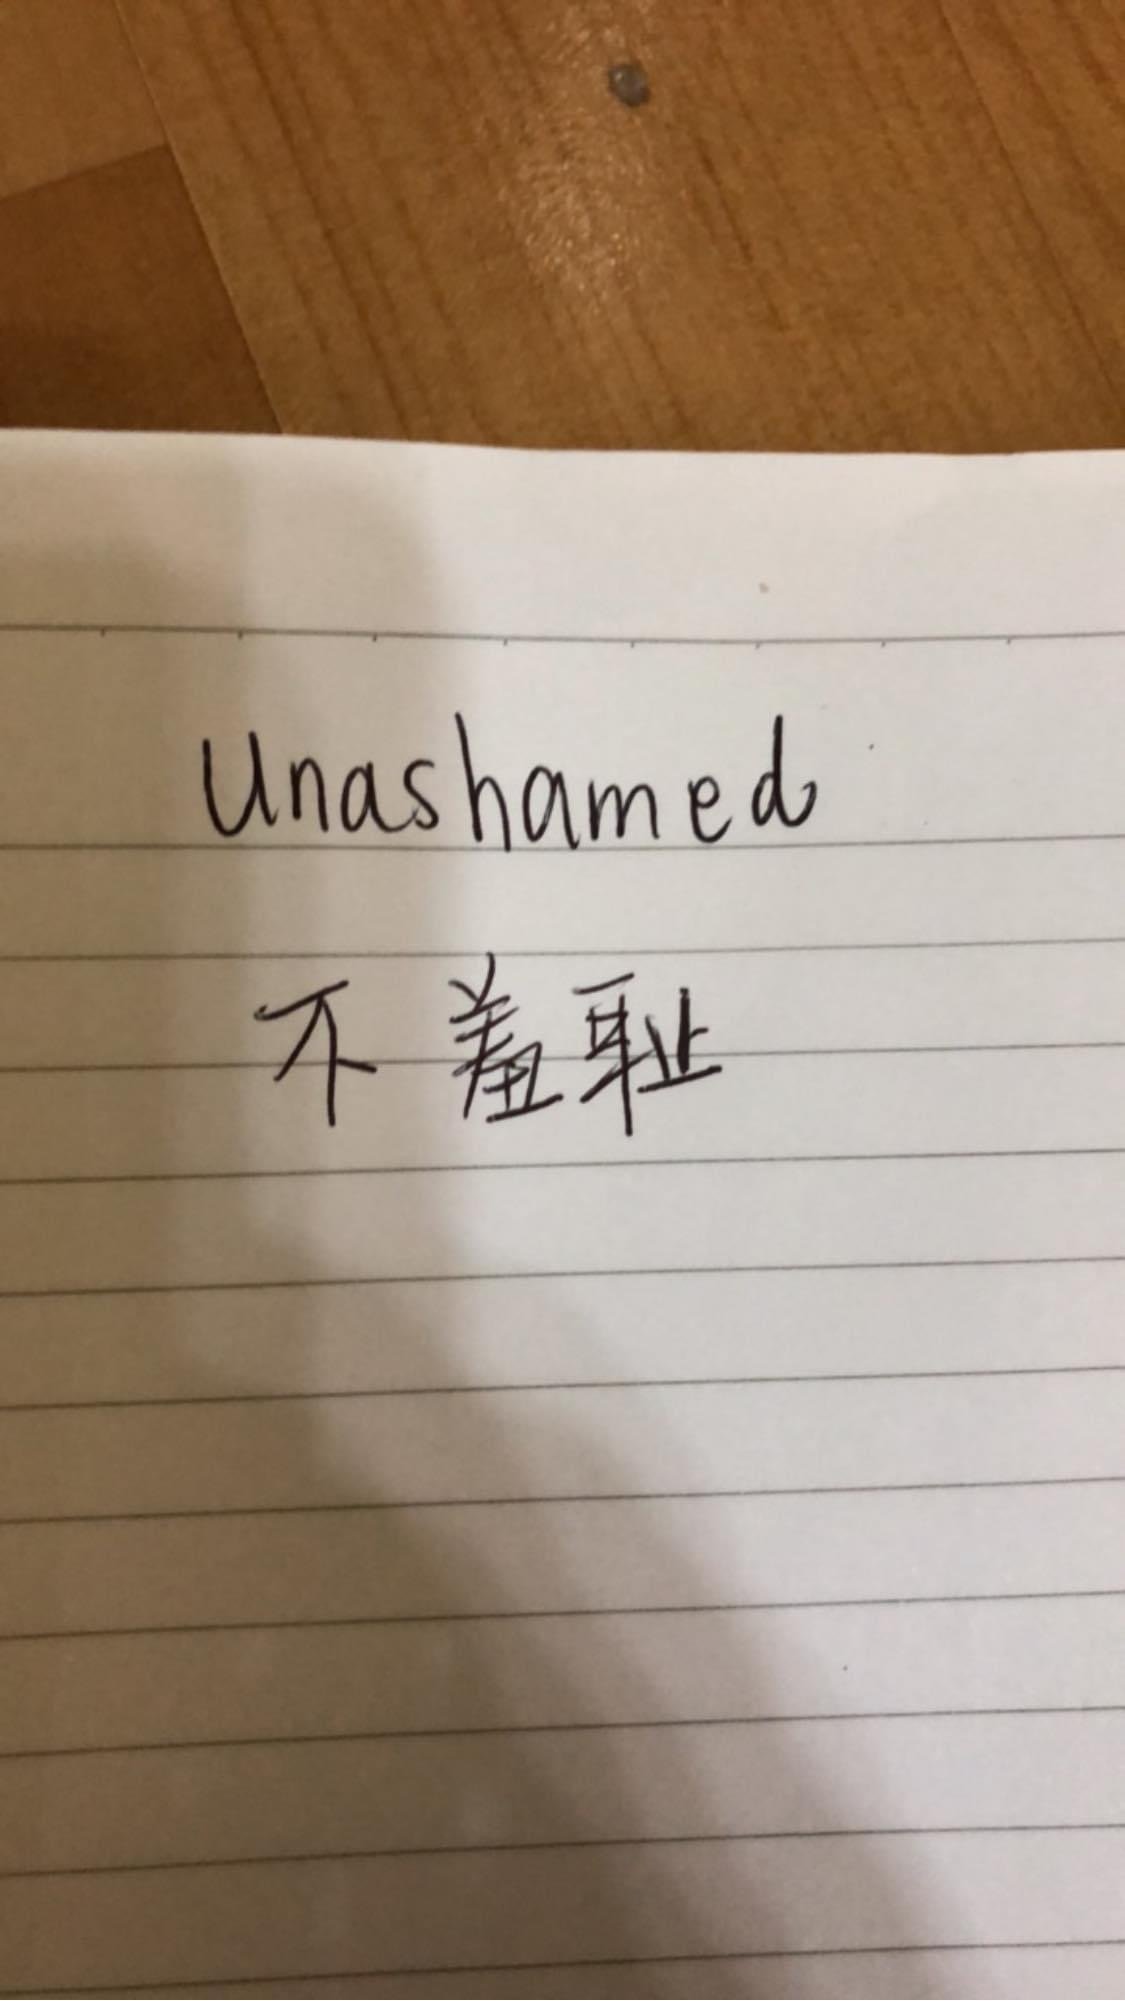 Unashamed
不羞耻